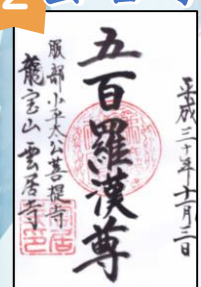 2
平成三十年十一月二日
五百羅漢尊
服部小平太公菩提寺
龍宝山 雲居寺